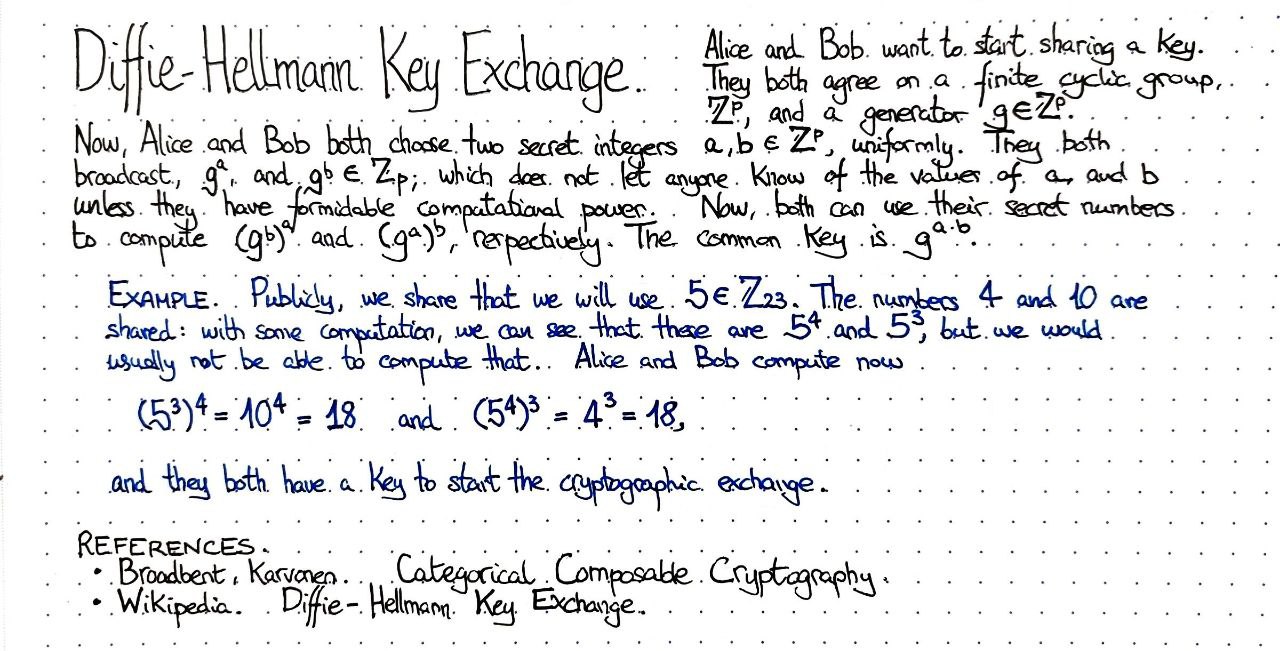 Diffie-Hellmann Key Exchange.
Alice and Bob want to start sharing a key.
They both agree on a finite cyclic group,
ℤᵖ, and a generator g∈ℤᵖ.
Now, Alice and Bob both choose two secret integers a,b ∈ ℤᵖ, uniformly. They both
broadcast, gᵃ, and gᵇ ∈ ℤₚ; which does not let anyone know of the values of a, and b
unless they have formidable computational power. Now, both can use their secret numbers
to compute (gᵇ)ᵃ and (gᵃ)ᵇ, respectively. The common key is gᵃ·ᵇ.
EXAMPLE. Publicly, we share that we will use 5∈ℤ₂₃. The numbers 4 and 10 are
shared: with some computation, we can see that these are 5⁴ and 5³, but we would
usually not be able to compute that. Alice and Bob compute now
(5³)⁴ = 10⁴ = 18 and (5⁴)³ = 4³ = 18,
and they both have a key to start the cryptographic exchange.
REFERENCES.
• Broadbent, Karvonen. Categorical Composable Cryptography.
• Wikipedia. Diffie-Hellmann Key Exchange.